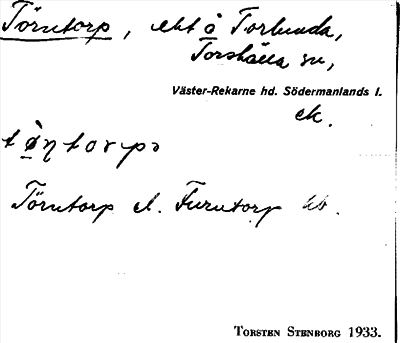 Törntorp, lht å Torlunda,
Torshälla sn,
Väster-Rekarne hd. Södermanlands l.
ek.
Törntorp el. Furutorp
TORSTEN STENBORG 1933.